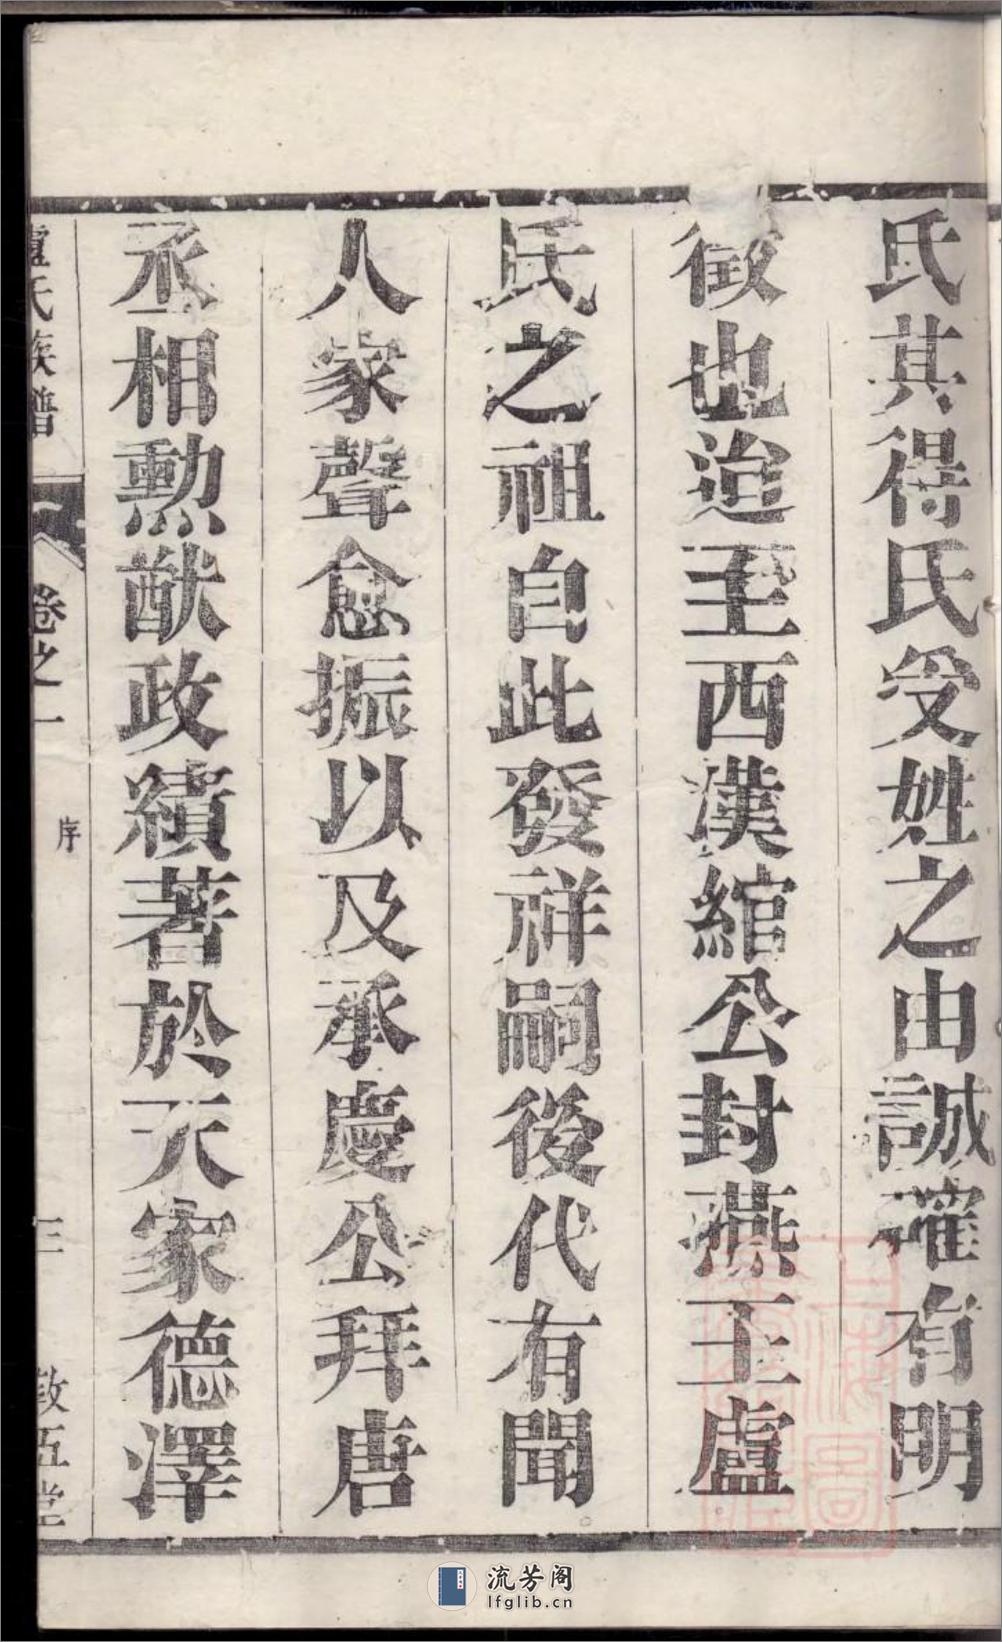 氏其得氏受姓之由誠確有明
徵也迨至西漢綰公封燕王盧
氏之祖自此發祥嗣後代有聞
人家聲愈振以及承慶公拜唐
丞相勳猷政績著於天家德澤
盧氏族譜 卷之一 序 三 敦五堂
流芳阁
lfglib.cn